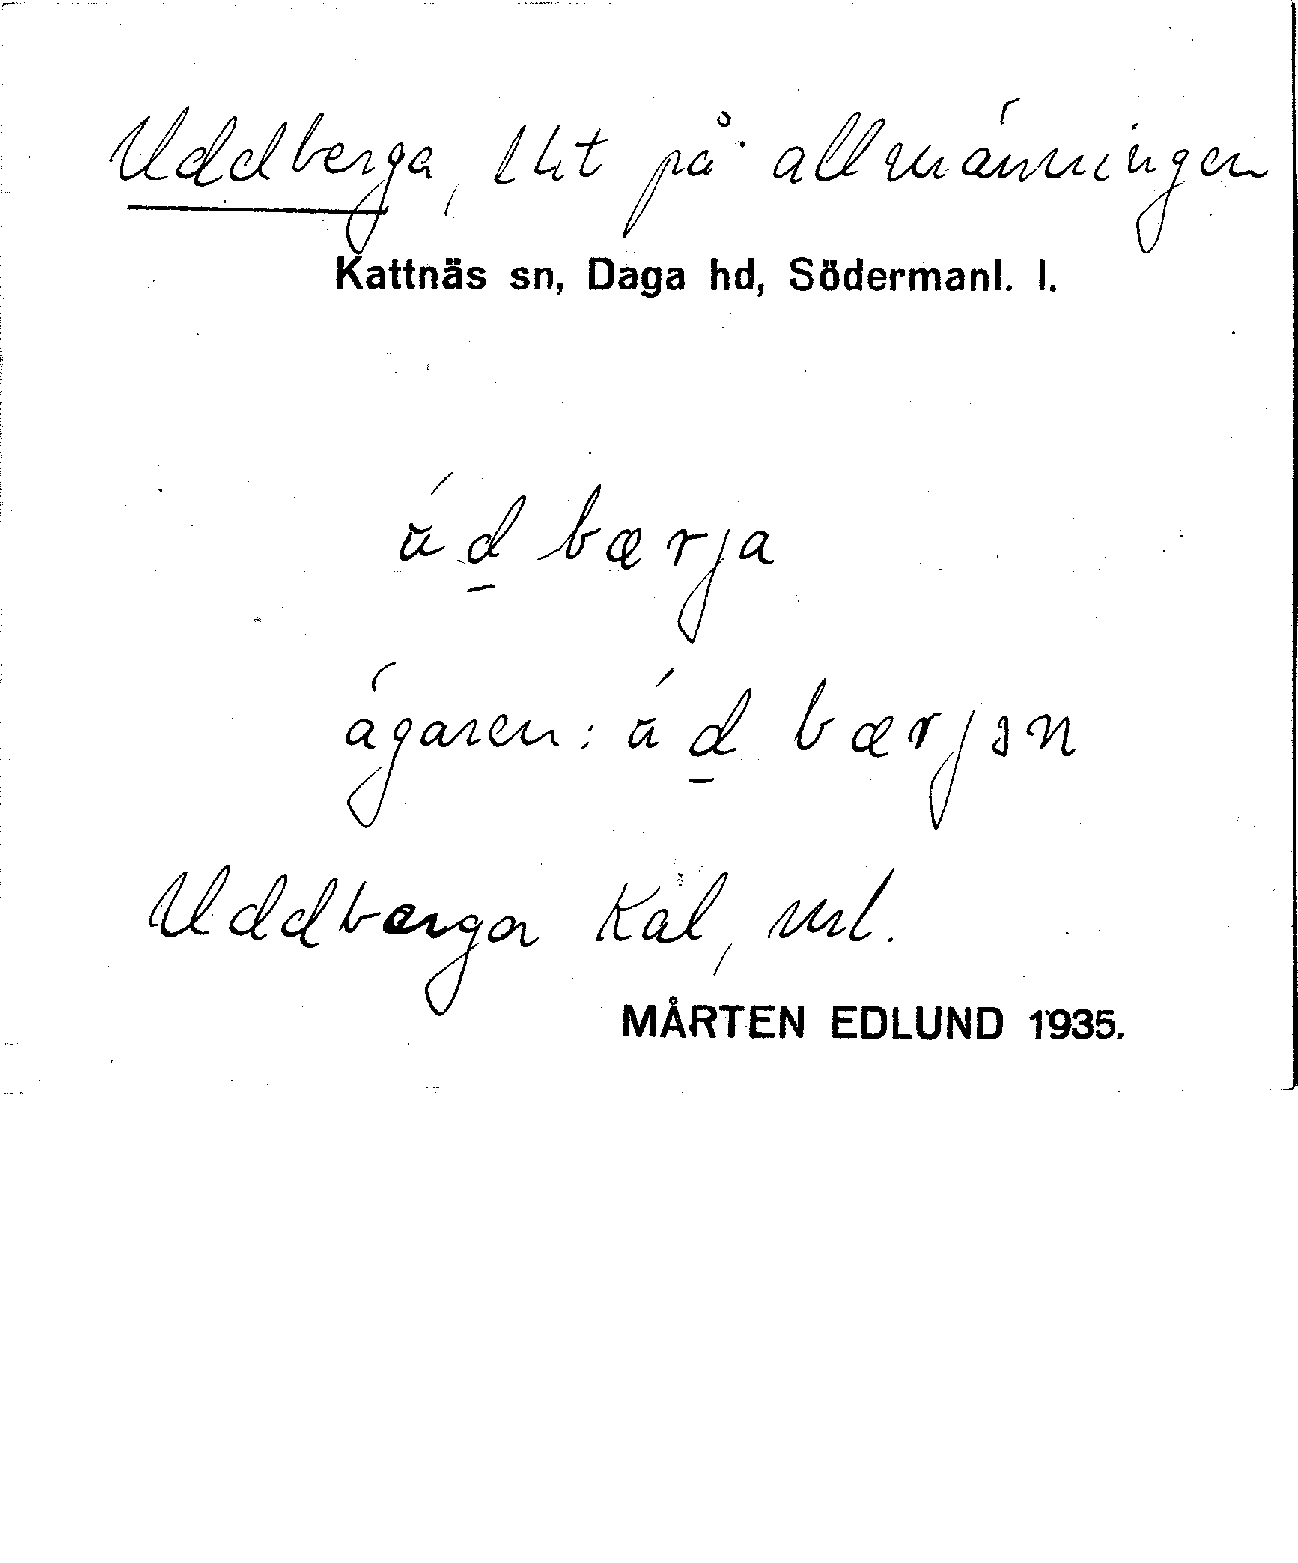 Uddberga, lht på allmänningen
Kattnäs sn, Daga hd, Södermanl. l.
úd bærja
ägaren: úd bærjən
Uddberga Käl, url.
MÅRTEN EDLUND 1935.